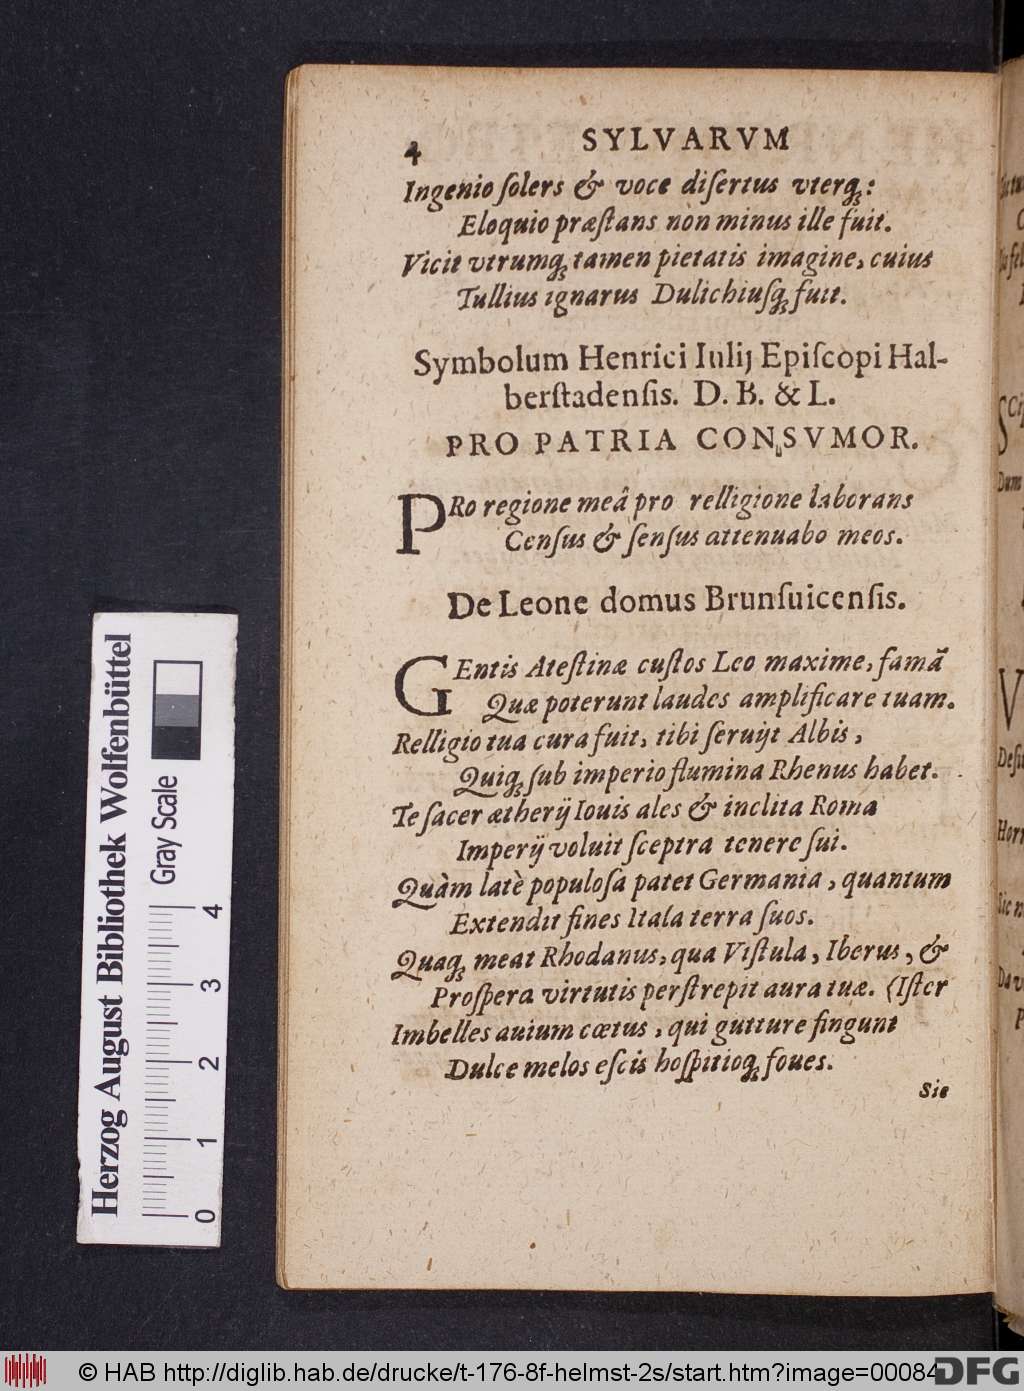 4 SYLVARVM
Ingenio ſolers & voce diſertus vterq́ꝫ:
Eloquio præſtans non minus ille fuit.
Vicit vtrumqꝫ tamen pietatis imagine, cuius
Tullius ignarus Dulichiuſqꝫ fuit.
Symbolum Henrici Iulij Epiſcopi Hal-
berſtadenſis. D. B. & L.
PRO PATRIA CONSVMOR.
PRo regione meâ pro relligione laborans
Cenſus & ſenſus attenuabo meos.
De Leone domus Brunſuicenſis.
GEntis Ateſtinæ cuſtos Leo maxime, famã
Quæ poterunt laudes amplificare tuam.
Relligio tua cura fuit, tibi ſeruijt Albis,
Quiqꝫ ſub imperio flumina Rhenus habet.
Te ſacer ætherij Iouis ales & inclita Roma
Imperij voluit ſceptra tenere ſui.
Quàm latè populoſa patet Germania, quantum
Extendit fines Itala terra ſuos.
Quaqꝫ meat Rhodanus, qua Viſtula, Iberus, &
Proſpera virtutis perſtrepit aura tuæ. (Iſter
Imbelles auium cœtus, qui gutture fingunt
Dulce melos eſcis hoſpitioqꝫ foues.
Sic
Herzog August Bibliothek Wolfenbüttel
Gray Scale
0 1 2 3 4
© HAB http://diglib.hab.de/drucke/t-176-8f-helmst-2s/start.htm?image=00084
DFG